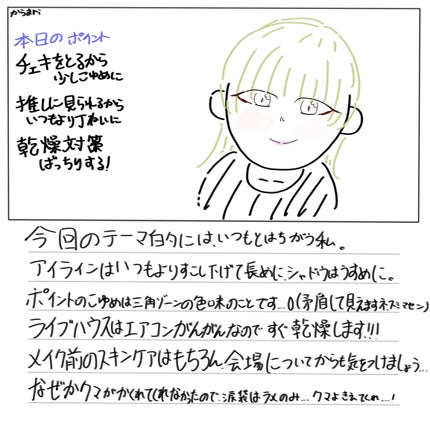 からまれ
本日のポイント
チェキをとるから
少しこゆめに
推しに見られるから
いつもより丁ねいに
乾燥対策
ばっちりする!
今回のテーマ的には、いつもとはちがう私。
アイラインはいつもよりすこし下げて長めに、シャドウはうすめに。
ポイントのこゆめは三角ゾーンの色味のことです…(矛盾して見えますネスミマセン)
ライブハウスはエアコンがんがんなのですぐ乾燥します!!!
メイク前のスキンケアはもちろん、会場についてからも気をつけましょう…
なぜかクマがかくれてくれなかったので、涙袋はラメのみ…クマよきえてくれ…!